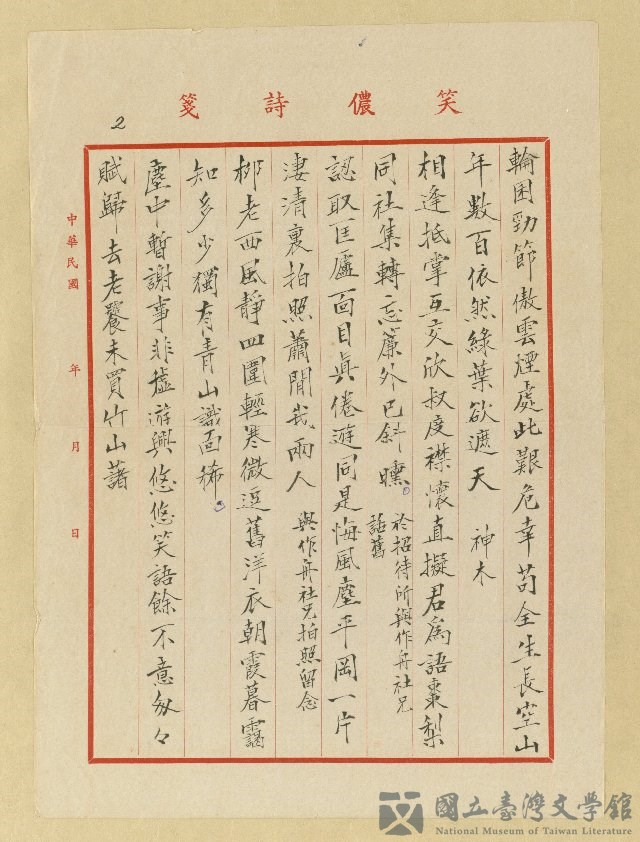 笑儂詩箋
2
輪囷勁節傲雲煙處此艱危幸苟全生長空山
年數百依然綠葉欲遮天 神木
相逢抵掌互交欣叔度襟懷直擬君為語棗梨
同社集轉忘簾外已斜曛。於招待所與作舟社兄
話舊
認取匡廬面目真倦遊同是悔風塵平岡一片
淒清裏拍照蕭閒我兩人 與作舟社兄拍照留念
柳老西風靜四圍輕寒微逗舊洋衣朝霞暮靄
知多少獨有青山識面稀。
塵中暫謝事非虛遊興悠悠笑語餘不意匆々
賦歸去老饕未買竹山藷
中華民國 年 月 日
國立臺灣文學館
National Museum of Taiwan Literature